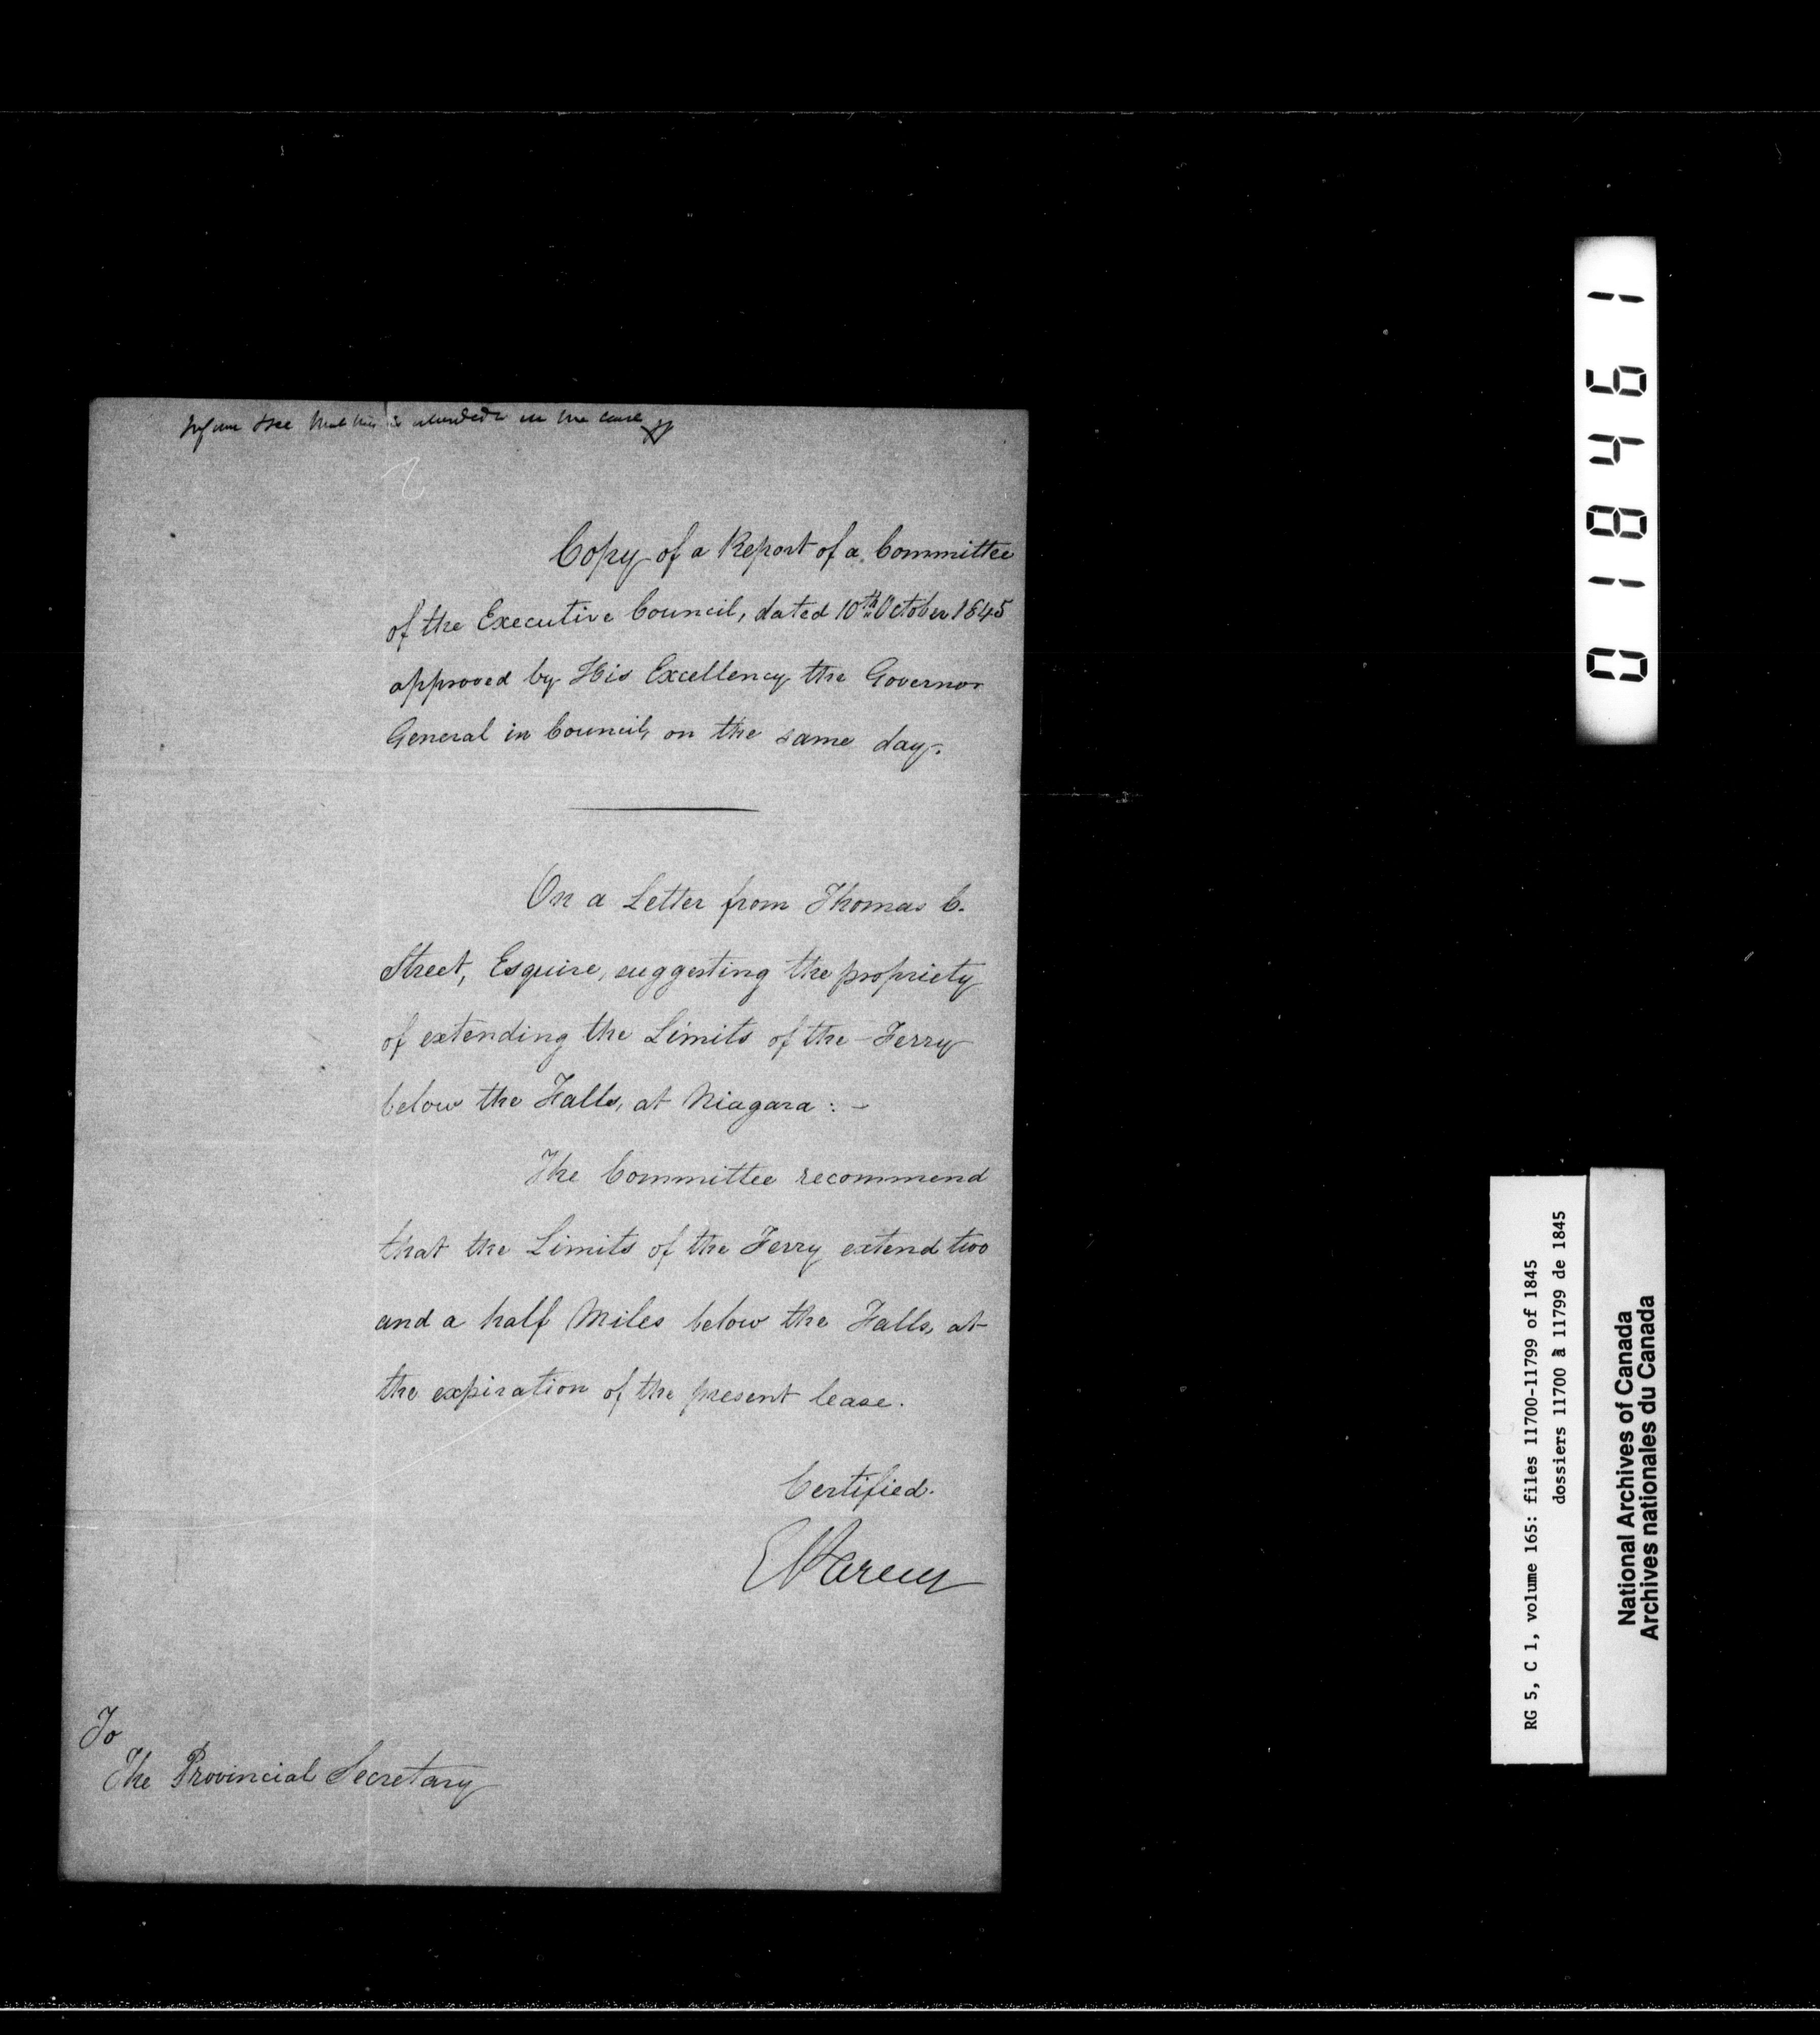 Copy of a Report of a Committee
of the Executive Council, dated 10th October 1845
approved by His Excellency the Governor
General in Council, on the same day.
On a Letter from Thomas C.
Street, Esquire, suggesting the propriety
of extending the Limits of the Ferry
below the Falls, at Niagara : -
The Committee recommend
that the Limits of the Ferry extend two
and a half Miles below the Falls, at
the expiration of the present lease.
Certified.
To
The Provincial Secretary
018461
RG 5, C 1, volume 165: files 11700-11799 of 1845
dossiers 11700 à 11799 de 1845
National Archives of Canada
Archives nationales du Canada